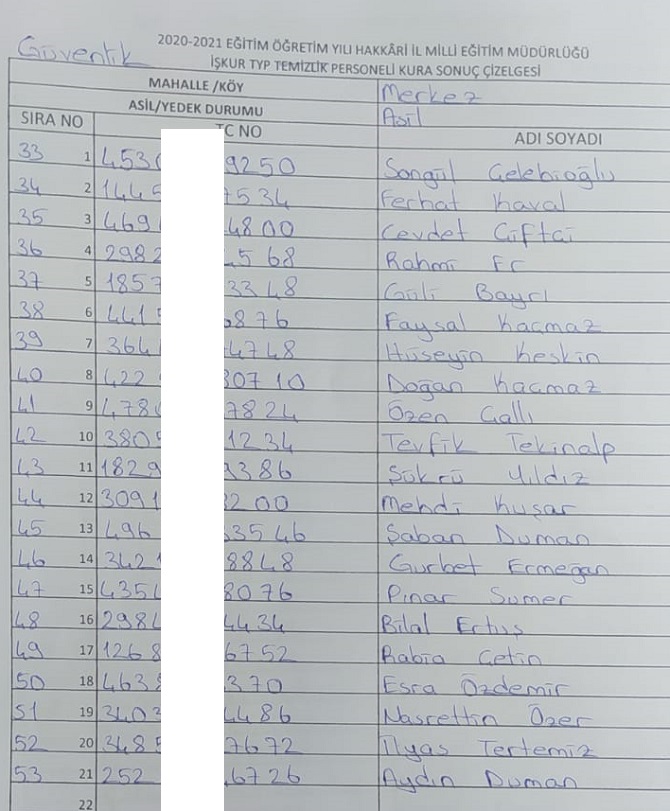 Güvenlik
2020-2021 EĞİTİM ÖĞRETİM YILI HAKKÂRİ İL MİLLİ EĞİTİM MÜDÜRLÜĞÜ
İŞKUR TYP TEMİZLİK PERSONELİ KURA SONUÇ ÇİZELGESİ
MAHALLE /KÖY Merkez
ASİL/YEDEK DURUMU Asil
SIRA NO TC NO ADI SOYADI
33 1 453 9250 Songül Çelebioğlu
34 2 144 7534 Ferhat Kaval
35 3 469 4800 Cevdet Çiftçi
36 4 2982 568 Rahmi Er
37 5 1857 3348 Güli Baycı
38 6 441 6876 Faysal Kaçmaz
39 7 364 4748 Hüseyin Keskin
40 8 422 30710 Doğan Kaçmaz
41 9 478 7824 Özen Çallı
42 10 380 1234 Tevfik Tekinalp
43 11 1829 9386 Şükrü Yıldız
44 12 3091 3200 Mehdi Kuşar
45 13 496 3546 Şaban Duman
46 14 342 8848 Gurbet Ermegan
47 15 435 8076 Pınar Sümer
48 16 298 4434 Bilal Ertuş
49 17 1268 6752 Rabia Çetin
50 18 463 370 Esra Özdemir
51 19 340 4486 Nasrettin Özer
52 20 348 7672 İlyas Tertemiz
53 21 252 6726 Aydın Duman
22